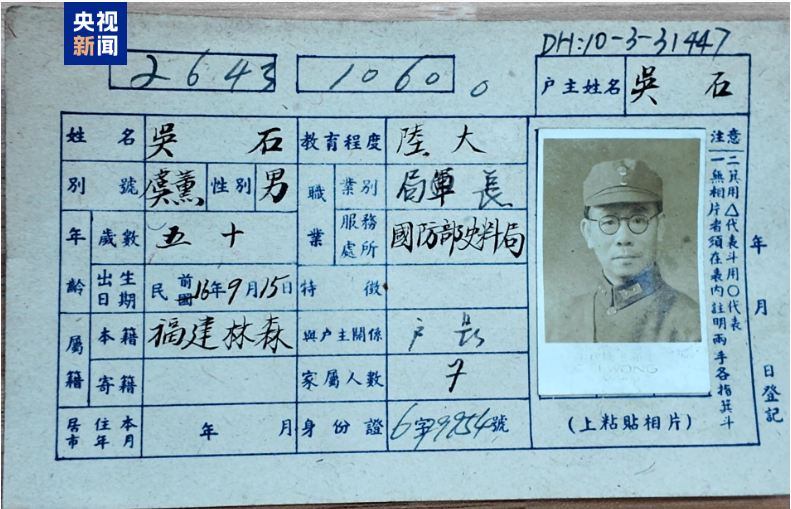 央视
新闻
DH:10-3-31447
2643
1060
0
户主姓名 吳石
姓名 吳石 教育程度 陸大
別號 虞薰 性別 男 職業 業別 軍 局長
年齡 歲數 五十 服務處所 國防部史料局
出生日期 民前國16年9月15日 特徵
屬籍 本籍 福建林森 與户主關係 户長
寄籍 家屬人數 7
居住本市年月 年 月 身份證 6字9254號
(上粘貼相片)
注意
一無相片者須在表內註明兩手各指箕斗
二箕用△代表斗用○代表
年 月 日登記
WONG